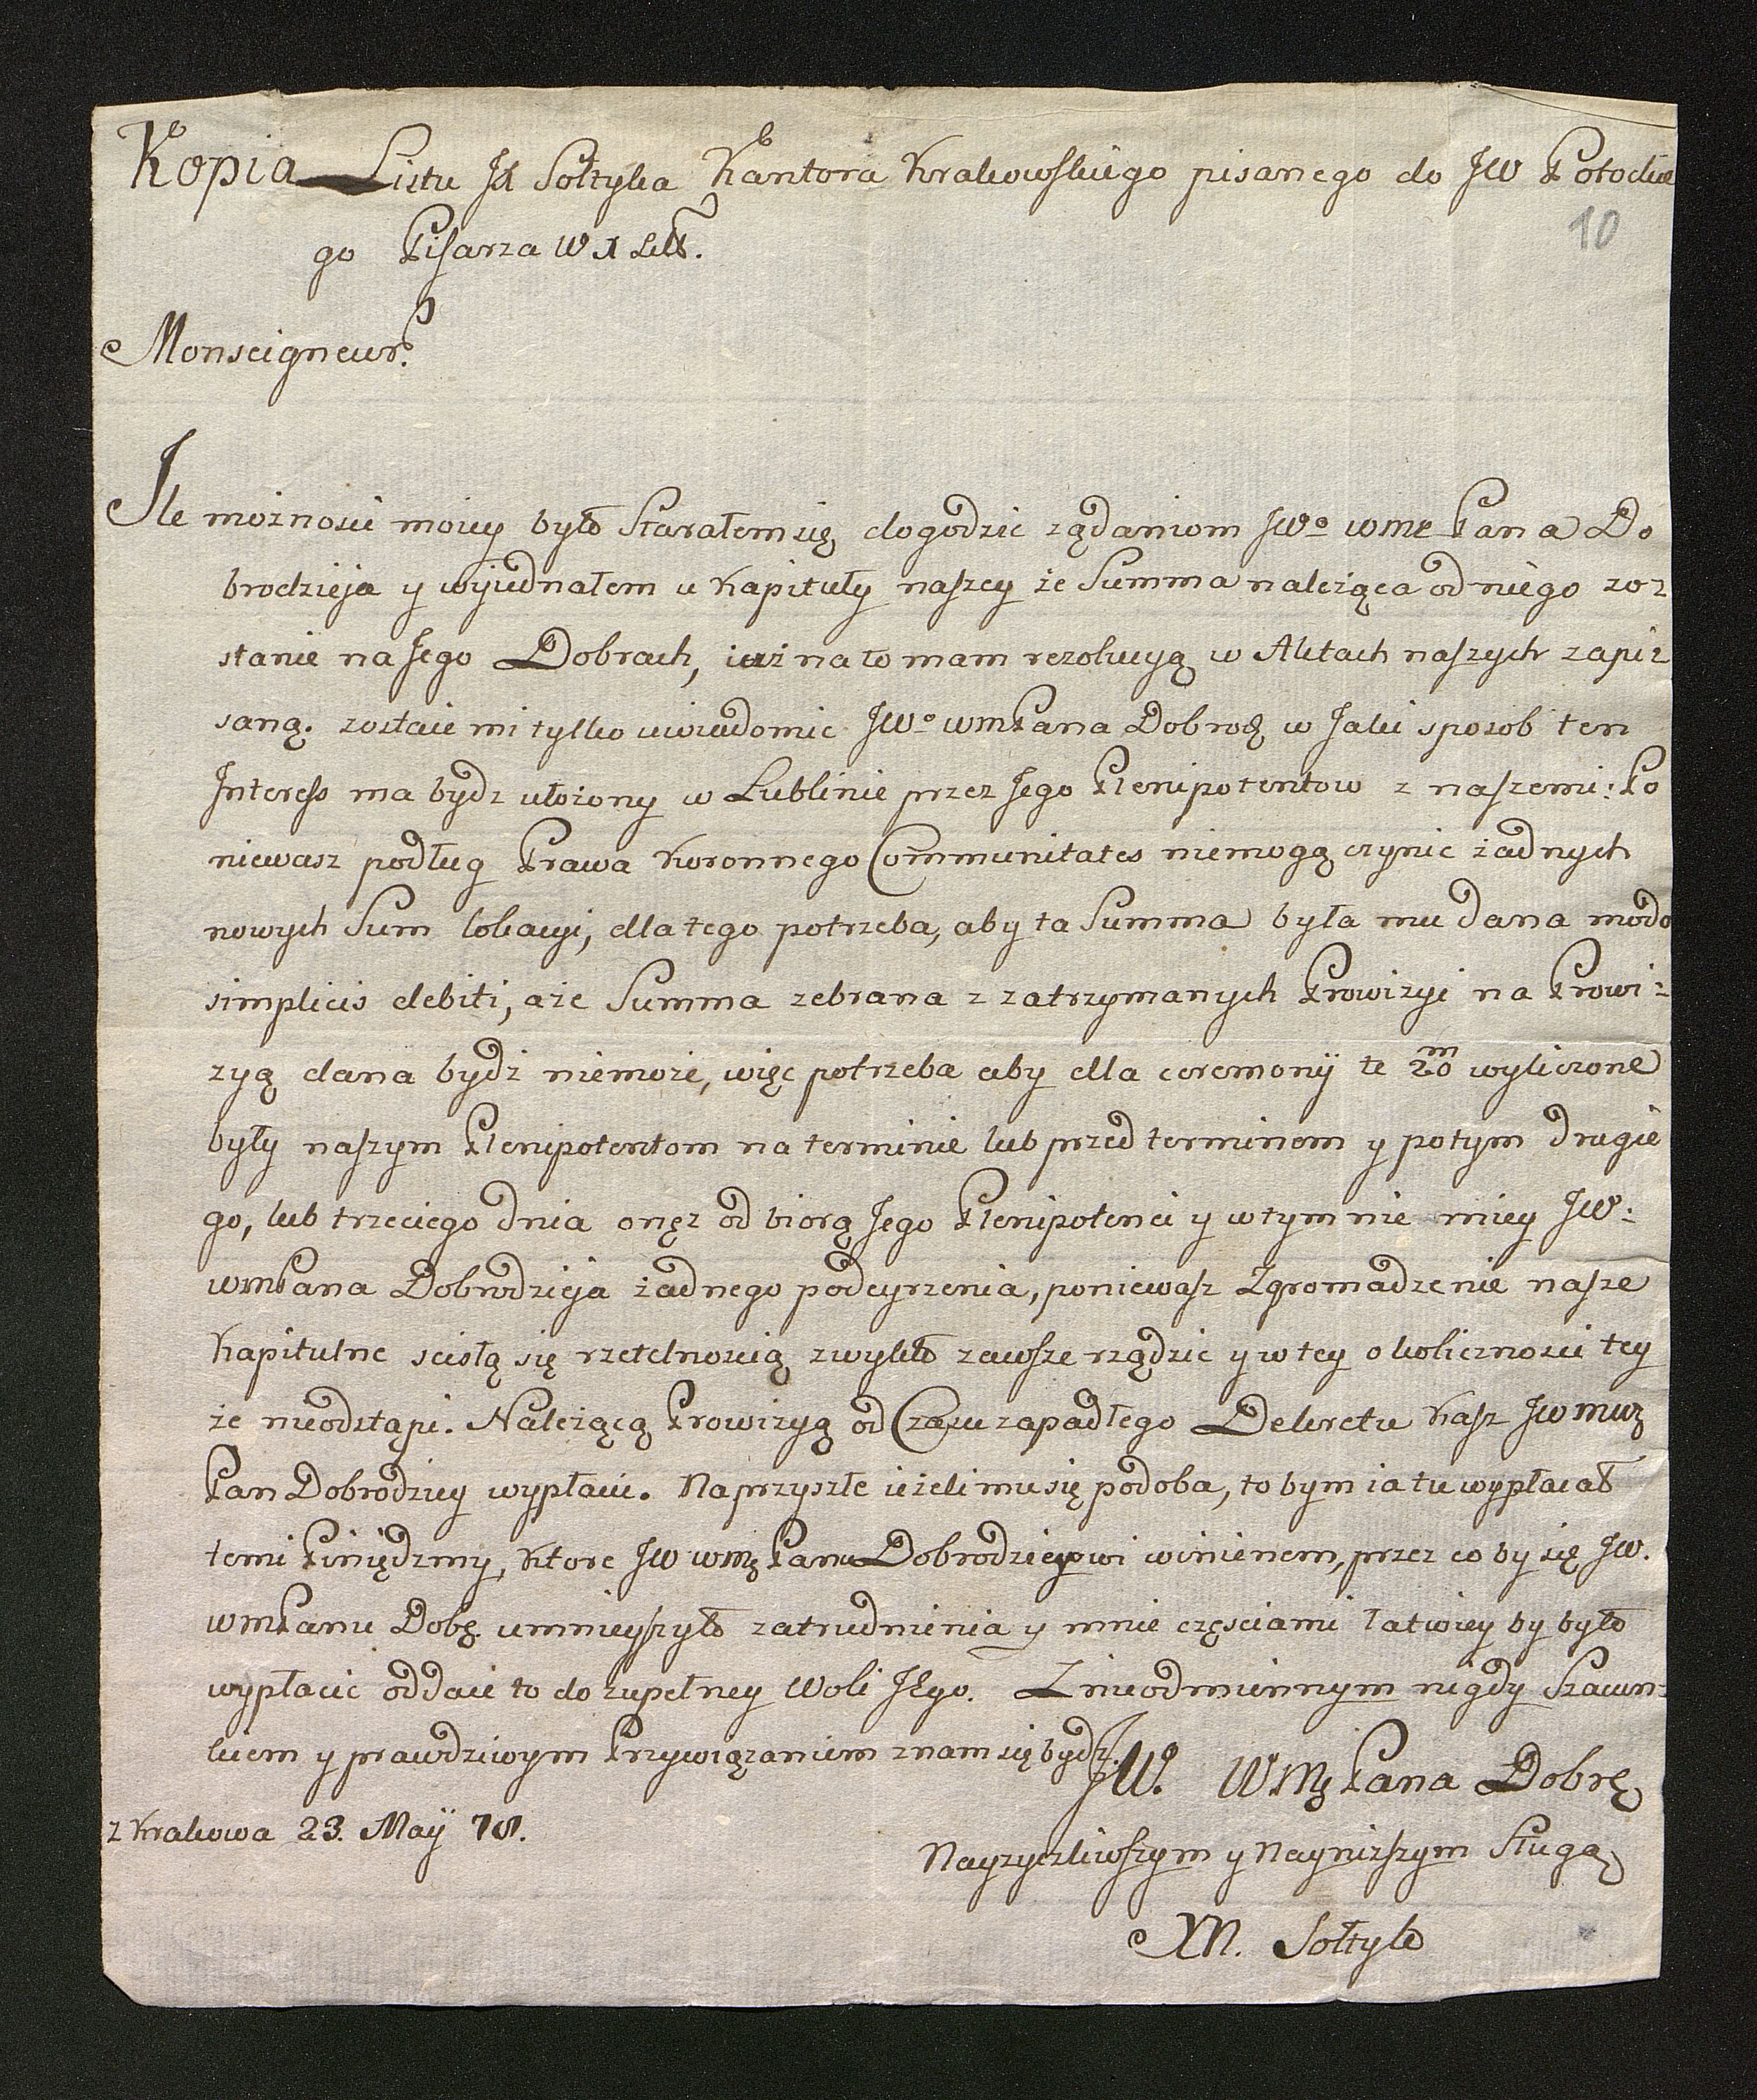 Kopia Listu JX Sołtyka Kantora Krakowskiego pisanego do JW Potockie
10
go Pisarza W X Litt.
Monseigneur.
Ile możnosci moiey było Starałem się dogodzic ządaniom JWo wmę Pana Do
brodzieja y wyjednałem u Kapituły naszey że Summa należąca od niego zo-
stanie na Jego Dobrach, iuż na to mam rezolucyą w Aktach naszych zapi-
saną. zostaie mi tylko uwiadomic JWo wmPana Dobrodz w Jaki sposob ten
Interess ma bydz ułożony w Lublinie przez Jego Plenipotentow z naszemi: Po
niewasz podług Prawa Koronnego Communitates niemogą czynic żadnych
nowych Sum lokacyi, dla tego potrzeba, aby ta Summa była mu dana modo
simplicis debiti, aże Summa zebrana z zatrzymanych Prowizyi na Prowi-
zyą dana bydź niemoże, więc potrzeba aby dla ceremonij te 20m wyliczone
były naszym Plenipotentom na terminie lub przed terminem y potym drugie
go, lub trzeciego dnia onęz od biorą Jego Plenipotenci y w tym nie miey JW:
wmPana Dobrodzieja żadnego podeyrzenia, poniewasz Zgromadzenie nasze
Kapitulne scisłą się rzetelnoscią zwykło zawsze rządzic y w tey okolicznosci tey
że nieodstąpi. Należącą Prowizyą od Czasu zapadłego Dekretu Kasz JW mwę
Pan Dobrodziey wypłacic. Naprzyszłe ieżeli mu się podoba, to bym ia tu wypłacał
temi Piniędzmy, ktore JW wmę Panu Dobrodzieyowi winienem, przez co by się JW.
wmPanu Dobę umnieyszyło zatrudnienia y mnie częsciami łatwiey by było
wypłacic oddaie to do zupełney Woli JEgo. Z nieodmiennym nigdy Szacun-
kiem y prawdziwym Przywiązaniem znam się bydz.
JW. Wmę Pana Dobrę
z Krakowa 23. Maij 78.
Nayzyczliwszym y Naynizszym Sługą
XM. Sołtyk